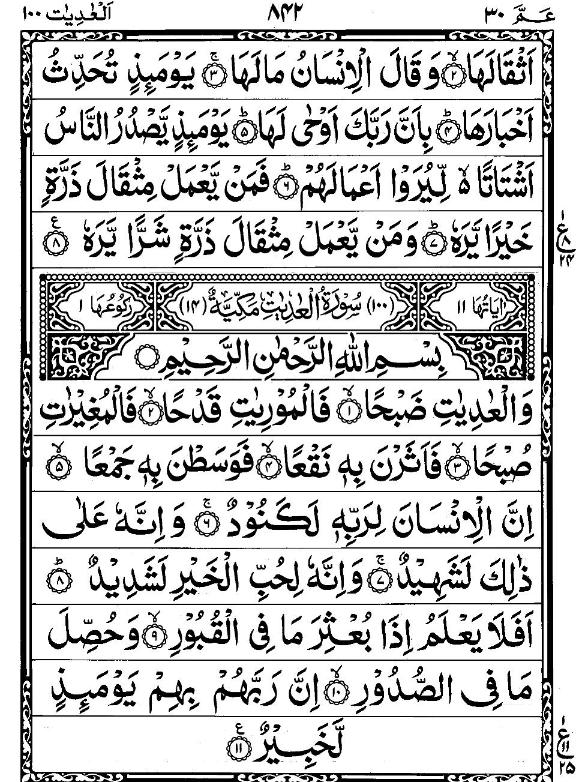 عـمّ ٣٠ ٨٤٢ الْعٰدِيٰت ١٠٠
اَثْقَالَهَا ۙ﴿٢﴾ وَقَالَ الْاِنْسَانُ مَا لَهَا ۚ﴿٣﴾ يَوْمَئِذٍ تُحَدِّثُ
اَخْبَارَهَا ؕ﴿٤﴾ بِاَنَّ رَبَّكَ اَوْحٰى لَهَا ؕ﴿٥﴾ يَوْمَئِذٍ يَّصْدُرُ النَّاسُ
اَشْتَاتًا ۙ۬ لِّيُرَوْا اَعْمَالَهُمْ ؕ﴿٦﴾ فَمَنْ يَّعْمَلْ مِثْقَالَ ذَرَّةٍ
خَيْرًا يَّرَهٗ ؕ﴿٧﴾ وَمَنْ يَّعْمَلْ مِثْقَالَ ذَرَّةٍ شَرًّا يَّرَهٗ ﴿٨﴾
ع ٨ ٢٤
اٰيَاتُهَا ١١ (١٠٠) سُوْرَةُ الْعٰدِيٰتِ مَكِّيَّةٌ (١٤) رُكُوْعُهَا ١
بِسْمِ اللّٰهِ الرَّحْمٰنِ الرَّحِيْمِ
وَالْعٰدِيٰتِ ضَبْحًا ۙ﴿١﴾ فَالْمُوْرِيٰتِ قَدْحًا ۙ﴿٢﴾ فَالْمُغِيْرٰتِ
صُبْحًا ۙ﴿٣﴾ فَاَثَرْنَ بِهٖ نَقْعًا ۙ﴿٤﴾ فَوَسَطْنَ بِهٖ جَمْعًا ۙ﴿٥﴾
اِنَّ الْاِنْسَانَ لِرَبِّهٖ لَكَنُوْدٌ ۚ﴿٦﴾ وَاِنَّهٗ عَلٰى
ذٰلِكَ لَشَهِيْدٌ ۚ﴿٧﴾ وَاِنَّهٗ لِحُبِّ الْخَيْرِ لَشَدِيْدٌ ؕ﴿٨﴾
اَفَلَا يَعْلَمُ اِذَا بُعْثِرَ مَا فِى الْقُبُوْرِ ۙ﴿٩﴾ وَحُصِّلَ
مَا فِى الصُّدُوْرِ ۙ﴿١٠﴾ اِنَّ رَبَّهُمْ بِهِمْ يَوْمَئِذٍ
لَّخَبِيْرٌ ﴿١١﴾
ع ١١ ٢٥